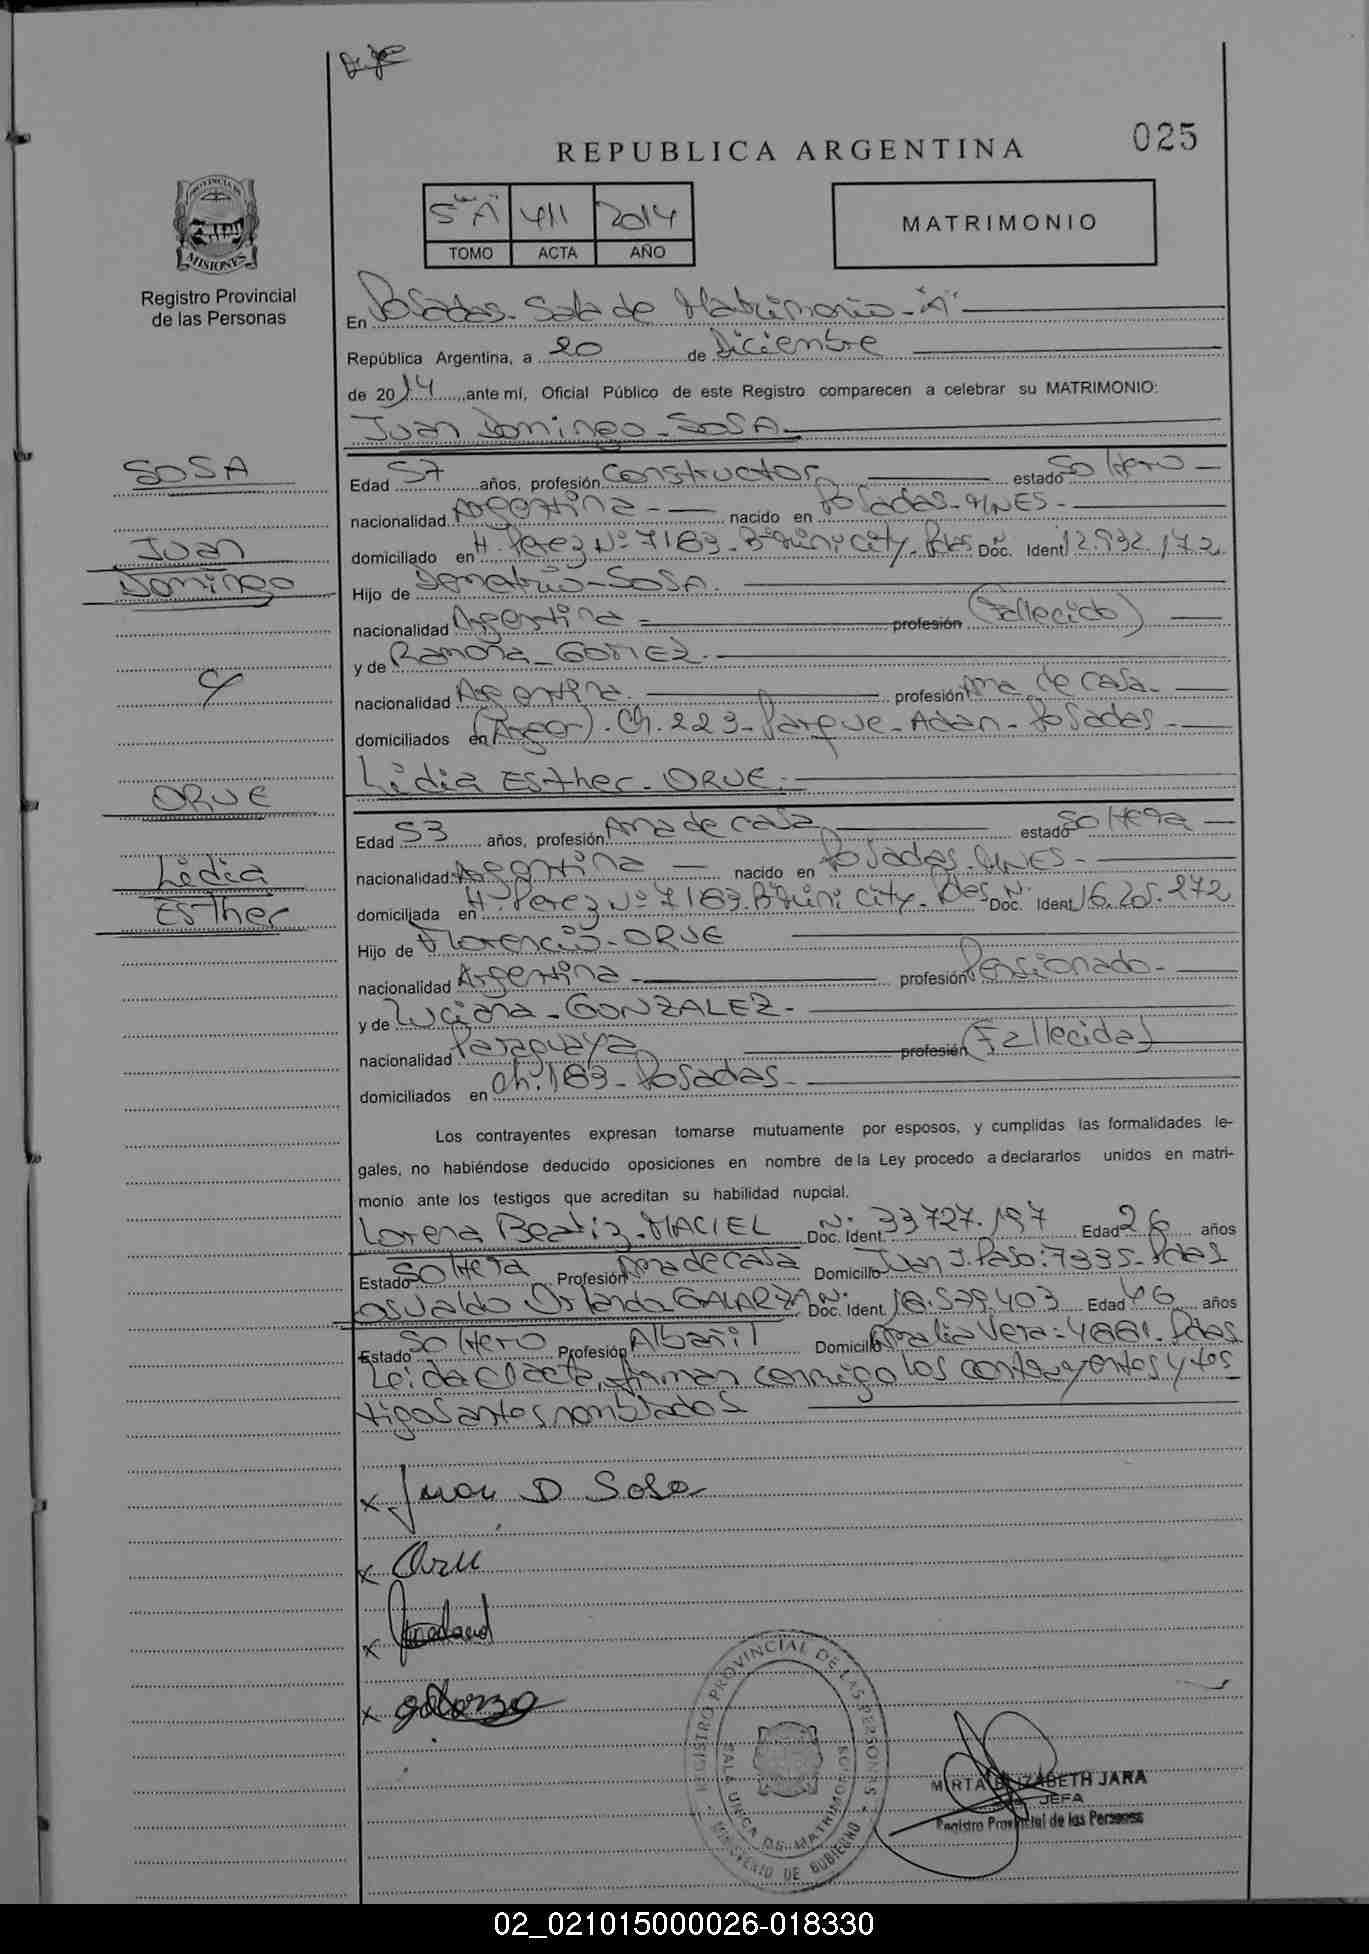 025
REPUBLICA ARGENTINA
PROVINCIA DE
MISIONES
Registro Provincial
de las Personas
5º "A" 411 2014
TOMO ACTA AÑO
MATRIMONIO
En Posadas - Sala de Matrimonio - "A"
República Argentina, a 20 de Diciembre
de 2014, ante mí, Oficial Público de este Registro comparecen a celebrar su MATRIMONIO:
Juan Domingo - SOSA
SOSA
Juan
Domingo
Edad 57 años, profesión Constructor estado Soltero
nacionalidad Argentina nacido en Posadas - MNES -
domiciliado en H. Perez Nº 7163 - City - Pdas Doc. Ident 12.932.172
Hijo de Demetrio - SOSA.
nacionalidad Argentina profesión (Fallecido)
y de Ramona - GOMEZ.
nacionalidad Argentina. profesión Ama de casa -
domiciliados en Ch. 223 - Parque - Adam - Posadas -
c/
Lidia Esther - ORUE.
ORUE
Lidia
Esther
Edad 53 años, profesión Ama de casa estado Soltera
nacionalidad: Argentina nacido en Posadas, MNES -
domiciliada en H. Perez Nº 7163 City - Doc. N. Ident 16.205.272
Hijo de Florencio - ORUE
nacionalidad Argentina profesión Pensionado -
y de Luciana - GONZALEZ -
nacionalidad Paraguaya profesión (Fallecida)
domiciliados en Ch. 163 - Posadas -
Los contrayentes expresan tomarse mutuamente por esposos, y cumplidas las formalidades le-
gales, no habiéndose deducido oposiciones en nombre de la Ley procedo a declararlos unidos en matri-
monio ante los testigos que acreditan su habilidad nupcial.
Lorena Beatriz - MACIEL Doc. N. Ident. 33727.197 Edad 26 años
Estado Soltera Profesión Ama de casa Domicilio Juan J. Paso: 7335 - Pdas
Osvaldo Orlando GALARZA Doc. N. Ident 18.579.403 Edad 46 años
Estado Soltero Profesión Albañil Domicilio Amalia Vera: 4881. Pdas
Leida el acta, firman conmigo los contrayentes y tes
tigos antes nombrados
x Juan D Sosa
x Orue
x
x Galarza
REGISTRO PROVINCIAL DE LAS PERSONAS
SALA UNICA DE MATRIMONIOS
MINISTERIO DE GOBIERNO
MIRTA ELIZABETH JARA
JEFA
Registro Provincial de las Personas
02_021015000026-018330